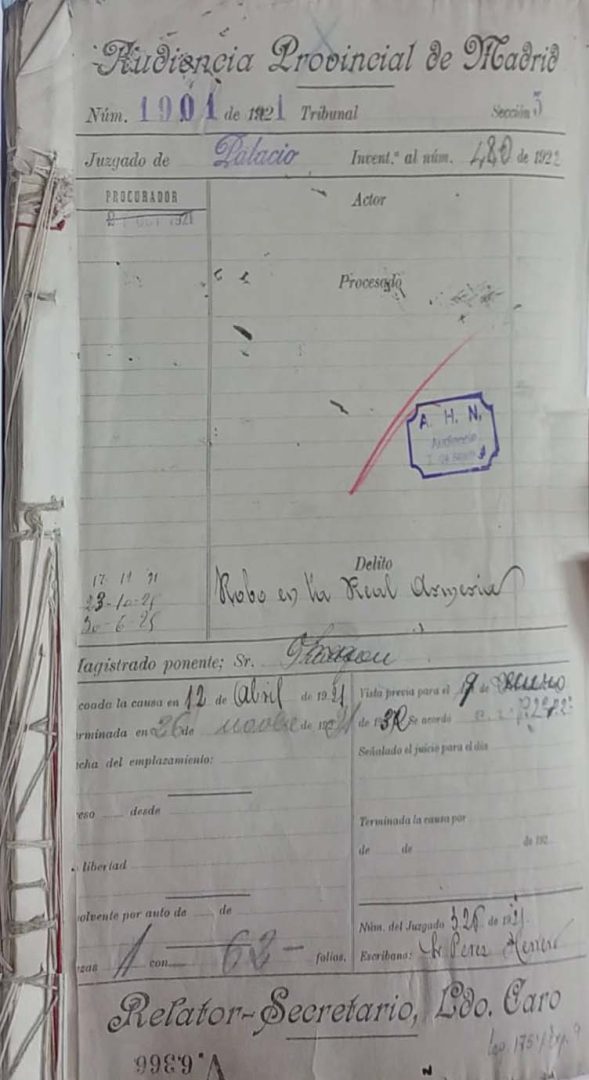 Audiencia Provincial de Madrid
Núm. 1901 de 1921 Tribunal Sección 3
Juzgado de Palacio Invent.º al núm. 480 de 1922
PROCURADOR
Actor
Procesado
A. H. N.
Audiencia
Delito
17 11 21
23-10-25
30-6-25
Robo en la Real Armeria
Magistrado ponente; Sr.
coada la causa en 12 de Abril de 1921
rminada en 26 de novbre de 1921
cha del emplazamiento:
reso desde
libertad
olvente por auto de de
zas 1 con 62 - folios.
Vista previa para el 9 de
de 1922 Se acordó
Señalado el juicio para el día
Terminada la causa por
de de de 192
Núm. del Juzgado 326 de 1921
Escribano: Perez Herrero
Relator-Secretario, Ldo. Caro
V. 6.366